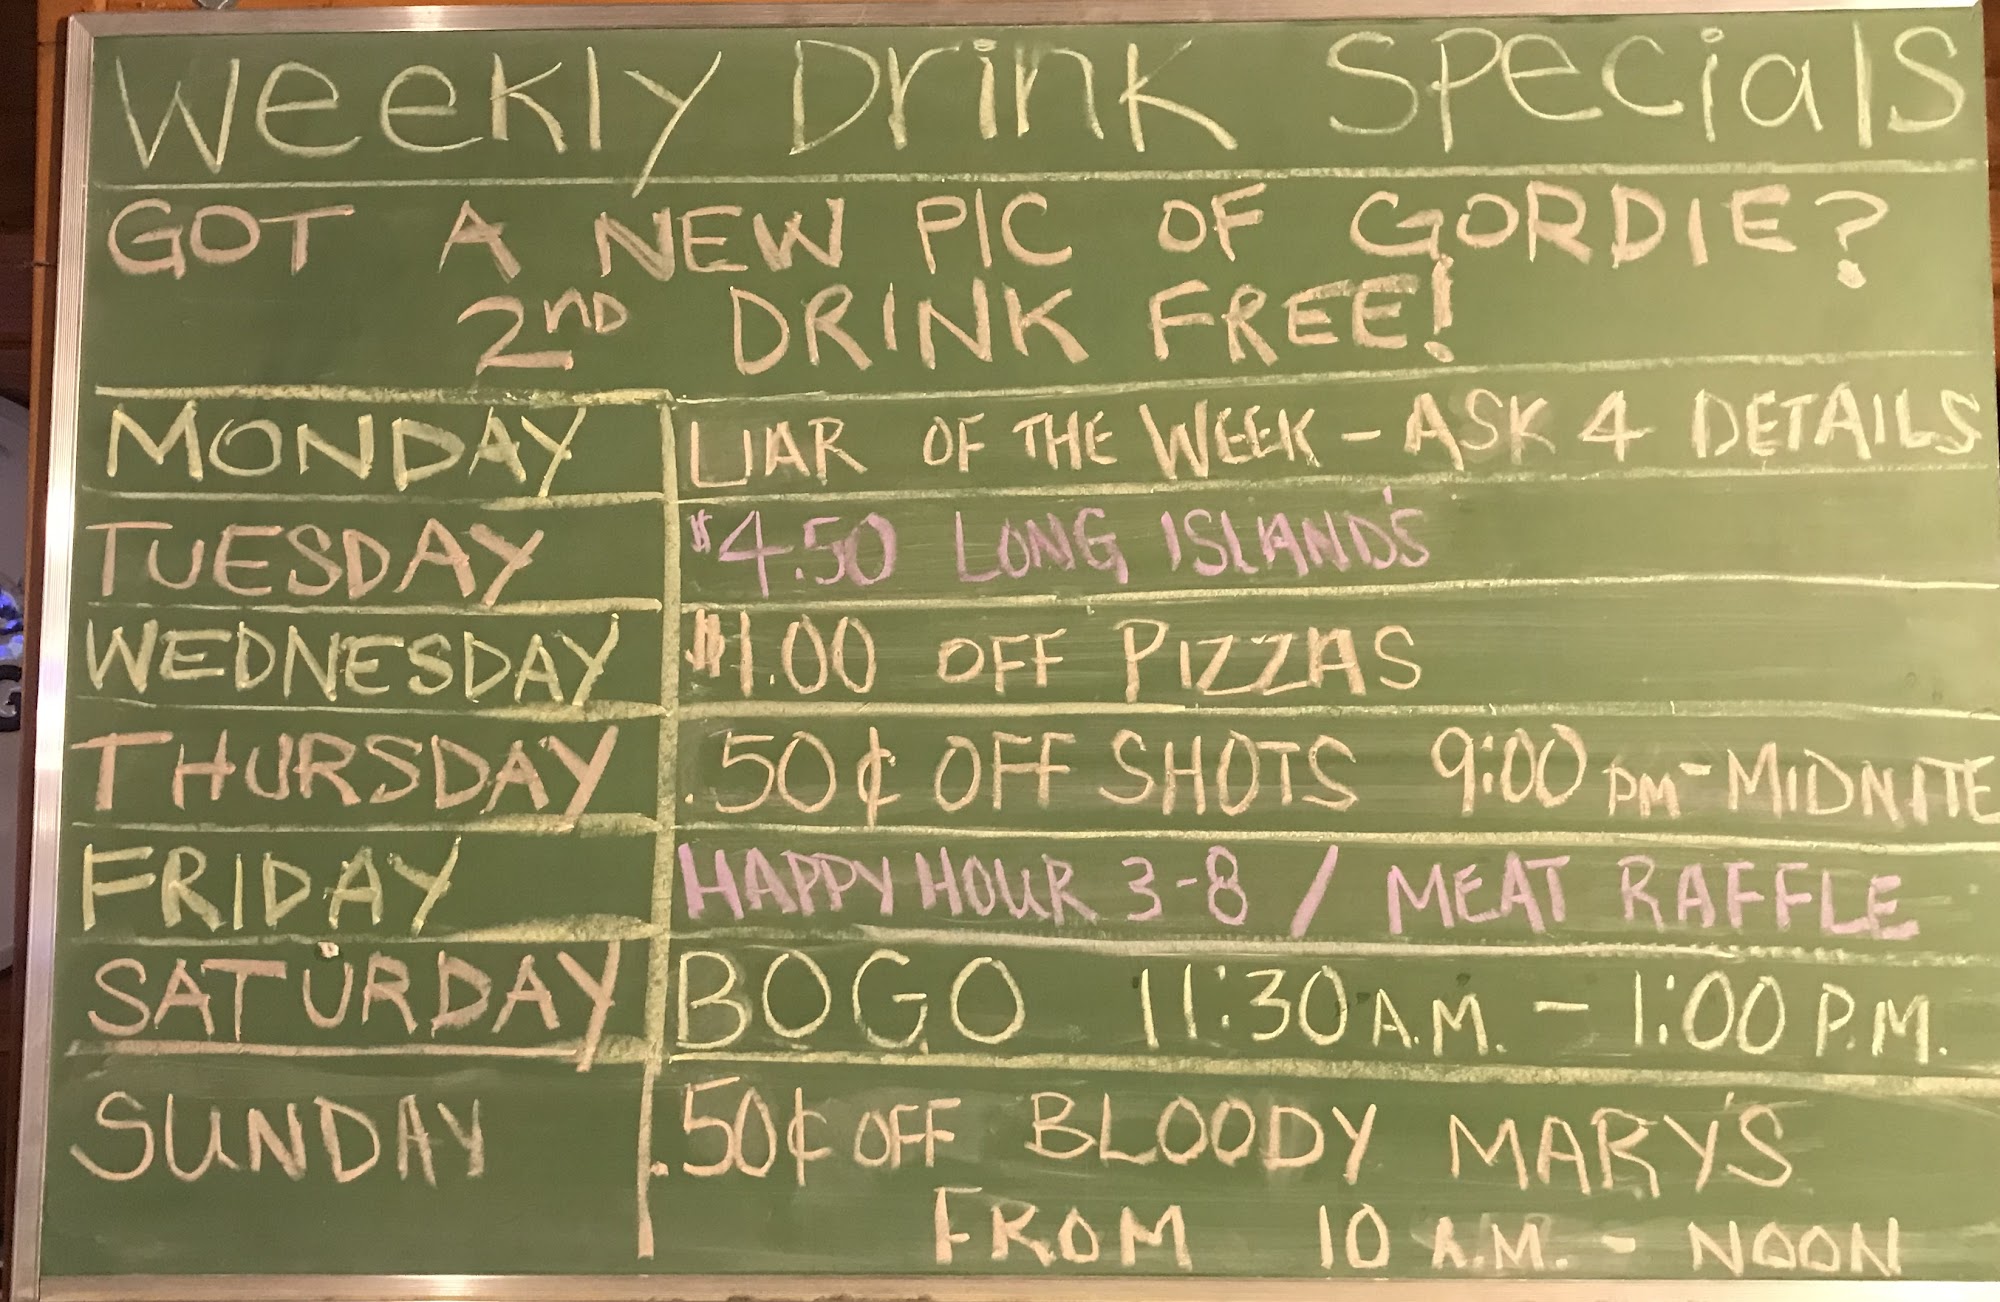 Weekly Drink Specials
GOT A NEW PIC OF GORDIE?
2ND DRINK FREE!
MONDAY LIAR OF THE WEEK - ASK 4 DETAILS
TUESDAY $4.50 LONG ISLAND'S
WEDNESDAY $1.00 OFF PIZZAS
THURSDAY .50¢ OFF SHOTS 9:00 PM - MIDNITE
FRIDAY HAPPY HOUR 3-8 / MEAT RAFFLE
SATURDAY BOGO 11:30 A.M. - 1:00 P.M.
SUNDAY .50¢ OFF BLOODY MARY'S
FROM 10 A.M. - NOON